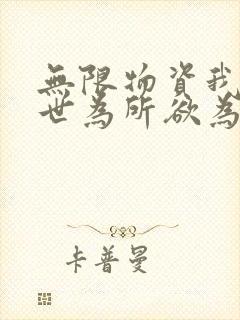 無限物資我
世為所欲為
卡普曼